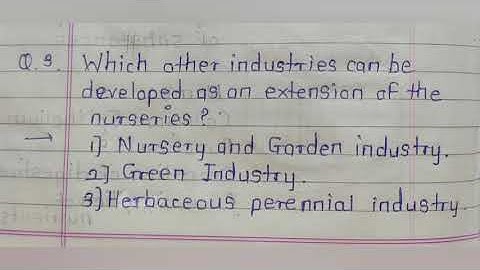 Q.9. Which other industries can be
developed as an extension of the
nurseries?
→ 1] Nursery and Garden industry.
2] Green Industry.
3] Herbaceous perennial industry.